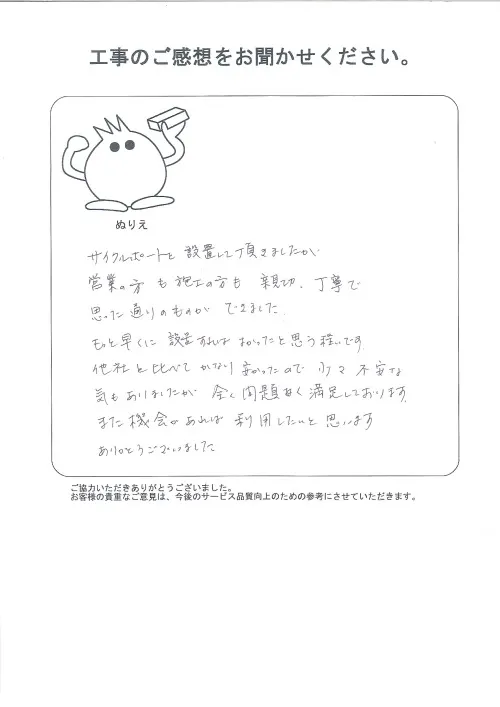 工事のご感想をお聞かせください。
ぬりえ
サイクルポートと 設置して頂きましたが
営業の方 も 施工の方も 親切、丁寧で
思った通りのものが できました
もっと早くに 設置すれば よかったと思う程です
他社と比べて かなり 安かったので 少々 不安な
気もありましたが 全く問題なく満足しております
また機会があれば 利用したいと思います
ありがとうございました
ご協力いただきありがとうございました。
お客様の貴重なご意見は、今後のサービス品質向上のための参考にさせていただきます。